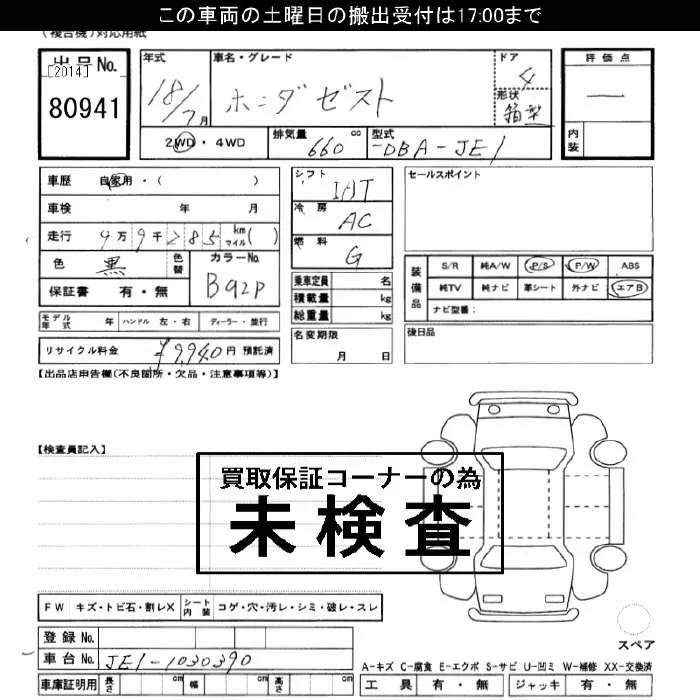 この車両の土曜日の搬出受付は17:00まで
(複合機)対応用紙
出品No.
[2014]
80941
年式 車名・グレード ドア 評価点
18/7月 ホンダゼスト 4 —
形状 箱型
2WD・4WD 排気量 660 cc 型式 -DBA-JE1 内装
車歴 自家用・( )
車検 年 月
走行 9万9千285 kmマイル( )
色 黒 色替 カラーNo. B92P
保証書 有・無
シフト IAT
冷房 AC
燃料 G
乗車定員 名
積載量 kg
総重量 kg
セールスポイント
装備品 S/R 純A/W P/S P/W ABS
純TV 純ナビ 革シート 外ナビ エアB
ナビ型番:
モデル年式 年 ハンドル 左・右 ディーラー・並行
名変期限 月 日
後日品
リサイクル料金 ¥9,940円 預託済
【出品店申告欄(不良箇所・欠品・注意事項等)】
【検査員記入】
買取保証コーナーの為
未検査
FW キズ・トビ石・割レX シート内装 コゲ・穴・汚レ・シミ・破レ・スレ
登録No.
車台No. JE1-1030390
スペア
A-キズ C-腐食 E-エクボ S-サビ U-凹ミ W-補修 XX-交換済
車庫証明用 長さ cm 幅 cm 高さ cm 工具 有・無 ジャッキ 有・無